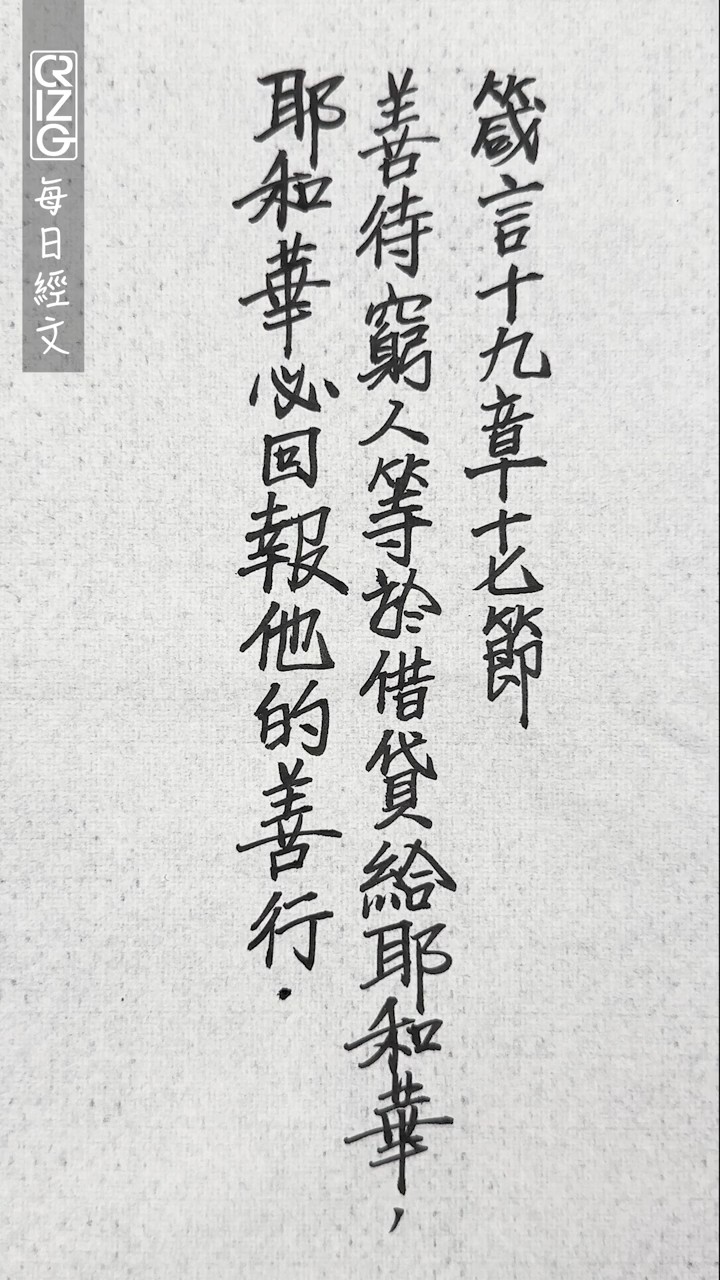 箴言十九章十七節
善待窮人等於借貸給耶和華，
耶和華必回報他的善行.
CRIZG
每日經文